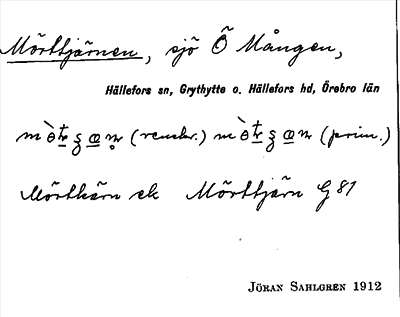 Mörttjärnen, sjö Ö Mången,
Hällefors sn, Grythytte o. Hällefors hd, Örebro län
(renskr.) (prim.)
Mörtkärn ek Mörttjärn G 81
JÖRAN SAHLGREN 1912